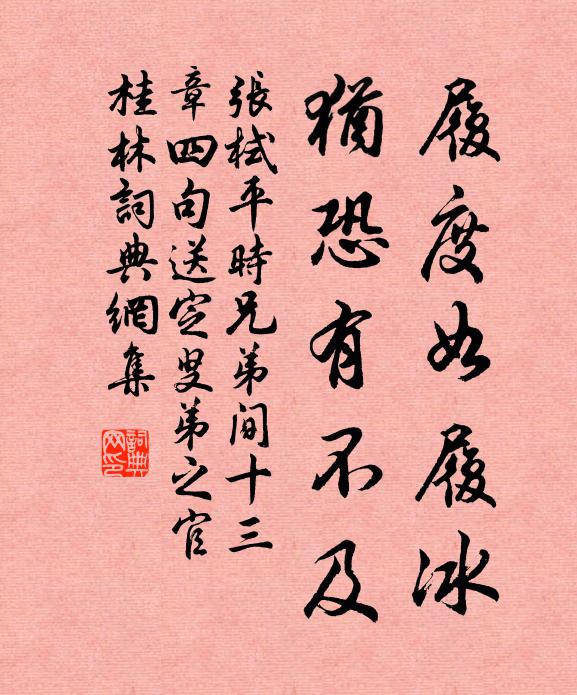 履度如履冰
猶恐有不及
張栻平時兄弟間十三
章四句送定叟弟之官
桂林詞典網集
詞典
网印